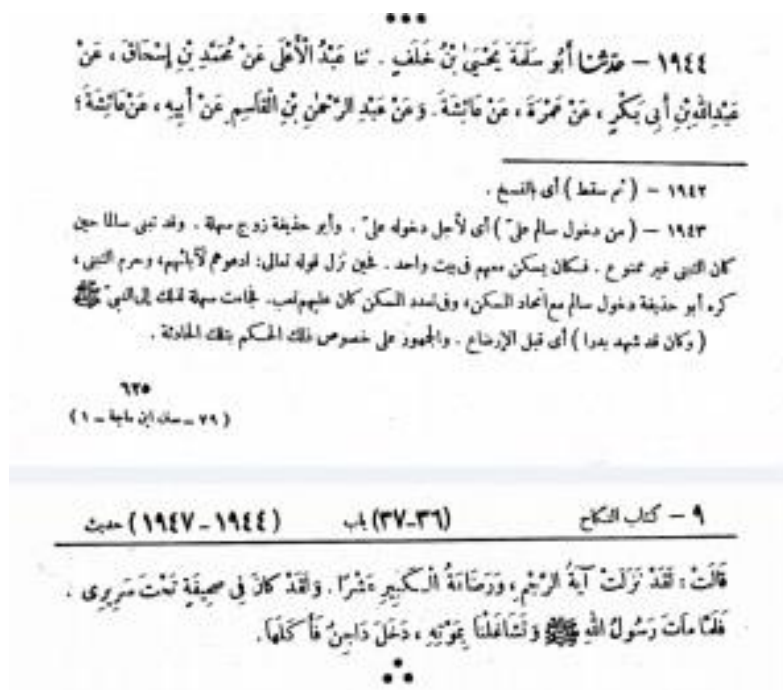 ١٩٤٤ – حدثنا أَبُو سَلَمَةَ يَحْيَىٰ بْنُ خَلَفٍ . ثنا عَبْدُ الْأَعْلَى عَنْ مُحَمَّدِ بْنِ إِسْحَاقَ ، عَنْ
عَبْدِاللهِ بْنِ أَبِى بَكْرٍ ، عَنْ عَمْرَةَ ، عَنْ عَائِشَةَ . وَعَنْ عَبْدِ الرَّحْمٰنِ بْنِ الْقَاسِمِ عَنْ أَبِيهِ ، عَنْ عَائِشَةَ ؛
١٩٤٢ – ( ثم سقط ) أى بالنسخ .
١٩٤٣ – ( من دخول سالم علىّ ) أى لأجل دخوله علىّ . وأبو حذيفة زوج سهلة . وقد تبنى سالما حين
كان التبنى غير ممنوع . فكان يسكن معهم فى بيت واحد . فحين نزل قوله تعالى: ادعوهم لآبائهم، وحرم التبنى ،
كره أبو حذيفة دخول سالم مع اتحاد المسكن ، وفى تعدد المسكن كان عليهم تعب . فجاءت سهلة لذلك إلى النبىّ ﷺ
( وكان قد شهد بدرا ) أى قبل الإرضاع . والجمهور على خصوص ذلك الحكم بتلك الحادثة .
٦٢٥
( ٧٩ – سنن ابن ماجة – ١ )
٩ – كتاب النكاح (٣٦-٣٧) باب (١٩٤٤-١٩٤٧) حديث
قَالَتْ : لَقَدْ نَزَلَتْ آيَةُ الرَّجْمِ ، وَرَضَاعَةُ الْكَبِيرِ عَشْرًا . وَلَقَدْ كَانَ فِى صَحِيفَةٍ تَحْتَ سَرِيرِى .
فَلَمَّا مَاتَ رَسُولُ اللهِ ﷺ وَتَشَاغَلْنَا بِمَوْتِهِ ، دَخَلَ دَاجِنٌ فَأَكَلَهَا .